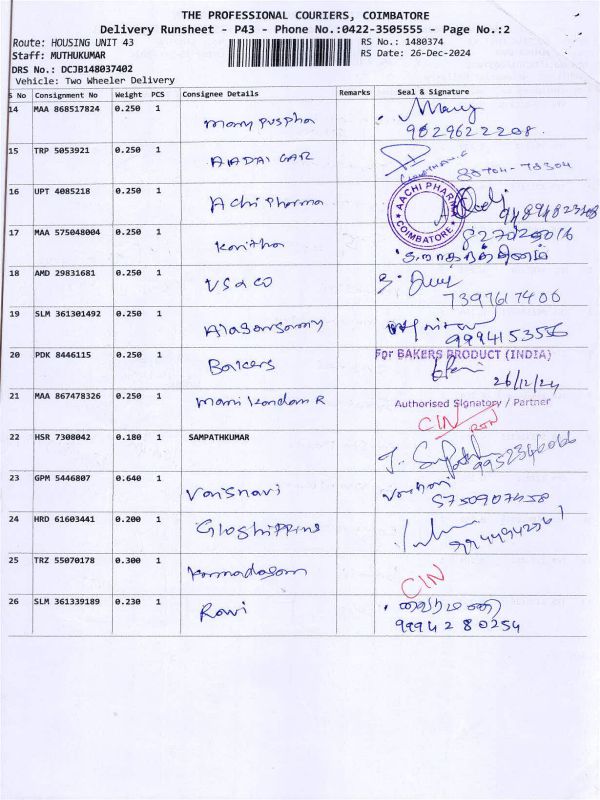 THE PROFESSIONAL COURIERS, COIMBATORE
Delivery Runsheet - P43 - Phone No.:0422-3505555 - Page No.:2
Route: HOUSING UNIT 43 RS No.: 1480374
Staff: MUTHUKUMAR RS Date: 26-Dec-2024
DRS No.: DCJB148037402
Vehicle: Two Wheeler Delivery
S No Consignment No Weight PCS Consignee Details Remarks Seal & Signature
14 MAA 868517824 0.250 1 marypuspha Mary
9629622208.
15 TRP 5053921 0.250 1
16 UPT 4085218 0.250 1 Achi Pharma AACHI PHARMA COIMBATORE
17 MAA 575048004 0.250 1 Kavitha
18 AMD 29831681 0.250 1 VS & CO
7397617406
19 SLM 361301492 0.250 1
9994153556
20 PDK 8446115 0.250 1 Bakers For BAKERS PRODUCT (INDIA)
26/12/24
21 MAA 867478326 0.250 1 Manikandan R Authorised Signatory / Partner
CIN
22 HSR 7308042 0.180 1 SAMPATHKUMAR 9952346066
23 GPM 5446807 0.640 1 Vaisnavi
24 HRD 61603441 0.200 1
25 TRZ 55070178 0.300 1 CIN
26 SLM 361339189 0.230 1 Ravi வைரமணி
9994280254